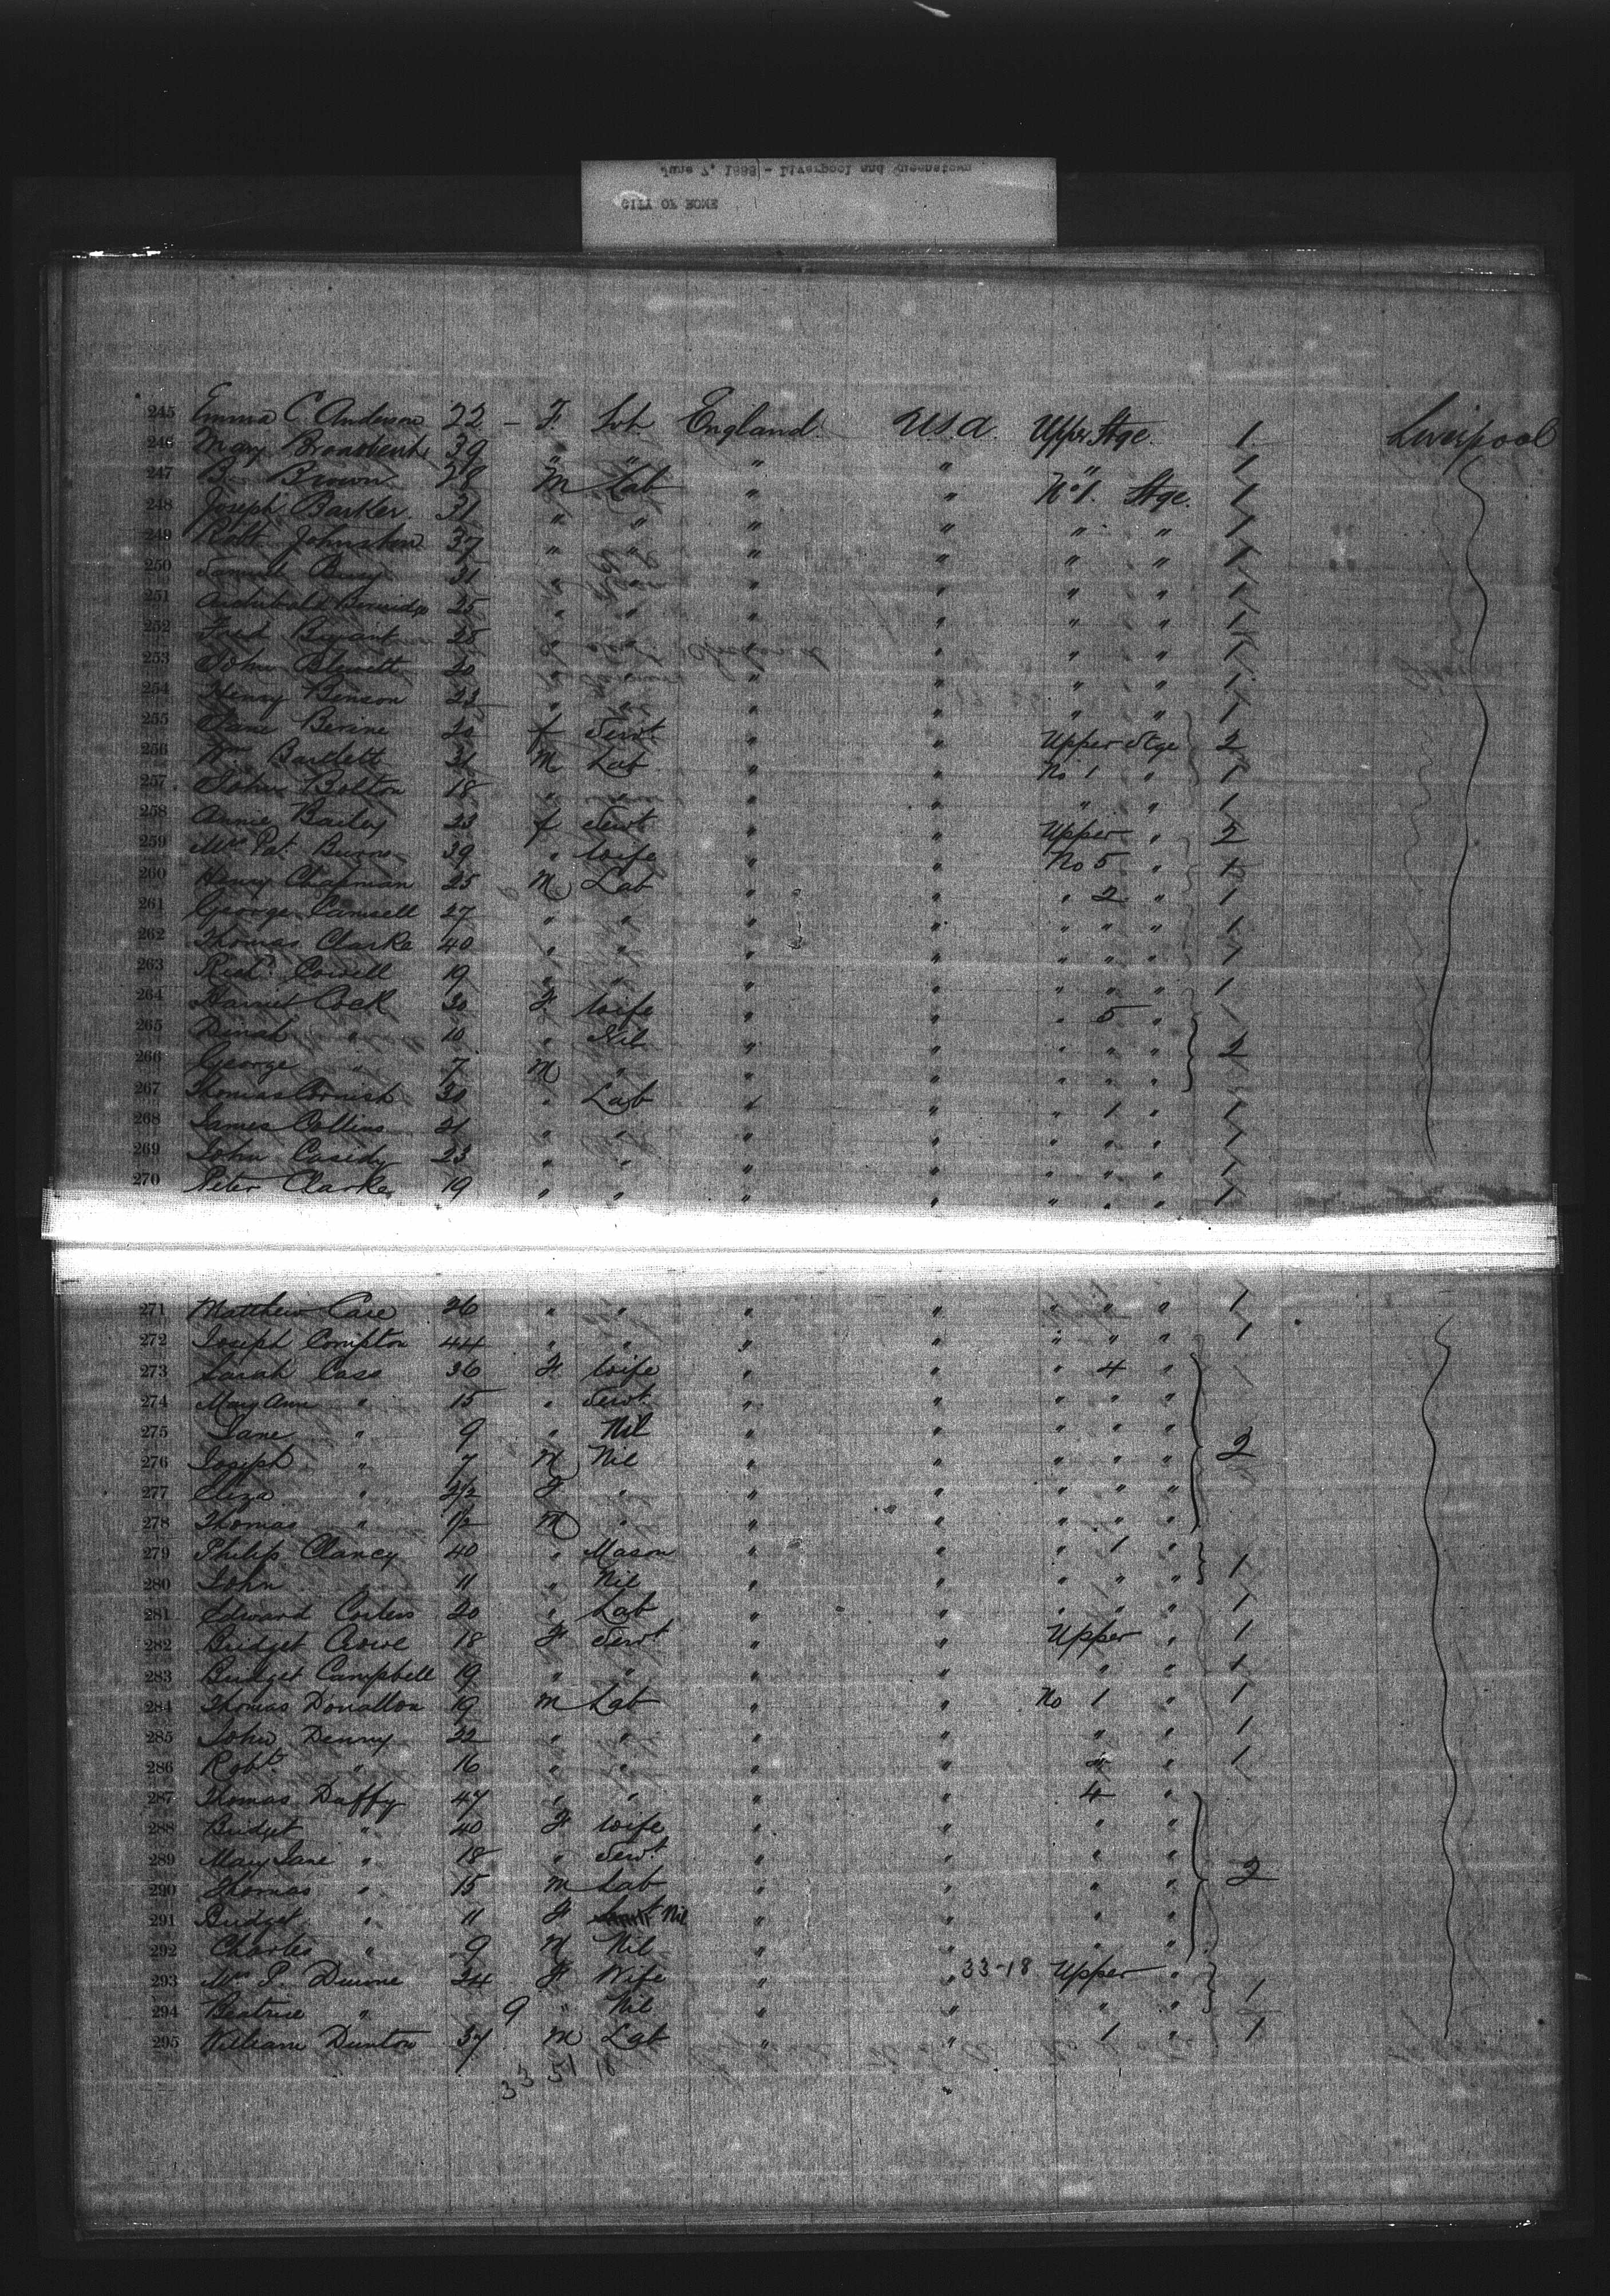 June 7, 1888 - Liverpool and Queenstown
CITY OF ROME
245 Emma C. Anderson 22 - F. England. U.S.A. Upper Stge. 1 Liverpool
246 Mary Broadbent 39 " " " " " 1
247 B. Brown 28 M Lab " " No 1. Stge. 1
248 Joseph Barker 31 " " " " " " 1
249 Robt Johnston 37 " " " " " " 1
250 Samuel 31 " " " " " 1
251 Archibald 25 " " " " " " 1
252 Fred Bryant 28 " " " " " 1
253 John Blewett 20 " " " " 1
254 Henry Benson 23 " " " " " " 1
255 Jane 20 f Servt " " Upper Stge 2
256 Wm Bartlett 21 M Lab " " No 1 " 1
257 John Bolton 18 " " " " " " 1
258 Annie Bailey 23 f Servt " " Upper " 2
259 Mrs Pat Burns 39 " Wife " " No 5 " 1
260 Henry Chapman 25 M Lab " " " 2 " 1
261 George Camsell 27 " " " " " " " 1
262 Thomas Clarke 40 " " " " " " " 1
263 Richd Cowell 19 " " " " " " " 1
264 Harriet Cock 30 F Wife " " " 5 "
265 Dinah " 10 " Nil " " " " " 2
266 George " 7 M " " " " " "
267 Thomas Cornish 30 " Lab " " " 1 " 1
268 James Collins 21 " " " " " " " 1
269 John Casidy 23 " " " " " " " 1
270 Peter Clarke 19 " " " " " " " 1
271 Matthew Case 26 " " " " " " " 1
272 Joseph Compton 44 " " " " " " " 1
273 Sarah Cass 36 F. Wife " " " 4 "
274 Mary Ann " 15 " Servt " " " " "
275 Jane " 9 " Nil " " " " " 2
276 Joseph " 7 M Nil " " " " "
277 Eliza " 2 1/2 F " " " " " "
278 Thomas " 1/2 M " " " " " "
279 Philip Clancy 40 " Mason " " " 1 "
280 John " 11 " Nil " " " " " 1
281 Edward 20 " Lab " " " " " 1
282 Bridget Crowe 18 F Servt " " Upper " 1
283 Bridget Campbell 19 " " " " " " 1
284 Thomas 19 m Lab " " No 1 " 1
285 John Denny 22 " " " " " " 1
286 Robt " 16 " " " " " " 1
287 Thomas Duffy 47 " " " " 4 "
288 Bridget " 40 F Wife " " " "
289 Mary Jane " 18 " Servt " " " "
290 Thomas " 15 m Lab " " " " 2
291 Bridget " 11 F Nil " " " "
292 Charles " 9 M Nil " " " "
293 Mrs P. 24 F Wife " " 33-18 Upper "
294 Beatrice " 9 " Nil " " " " 1
295 William Dunton 37 m Lab " " 1 " 1
33 51 18